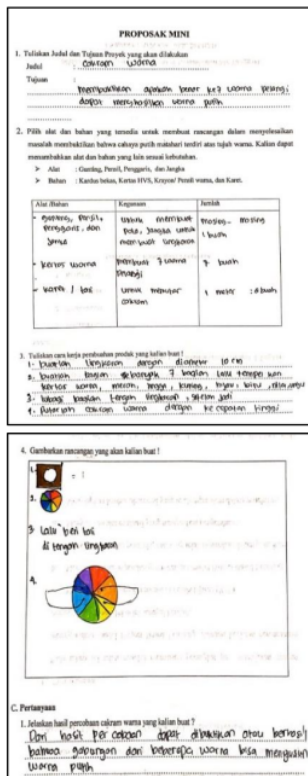 PROPOSAK MINI
1. Tuliskan Judul dan Tujuan Proyek yang akan dilakukan
Judul : cakram warna
Tujuan :
membuktikan apakah benar ke 7 warna pelangi
dapat menghasilkan warna putih
2. Pilih alat dan bahan yang tersedia untuk membuat rancangan dalam menyelesaikan
masalah membuktikan bahwa cahaya putih matahari terdiri atas tujuh warna. Kalian dapat
menambahkan alat dan bahan yang lain sesuai kebutuhan.
➢ Alat : Gunting, Pensil, Penggaris, dan Jangka
➢ Bahan : Kardus bekas, Kertas HVS, Krayon/ Pensil warna, dan Karet.
Alat /Bahan Kegunaan Jumlah
- gunting, pensil, untuk membuat masing - masing
penggaris, dan pola, jangka untuk 1 buah
jangka membuat lingkaran
- kertas warna membuat 7 warna 7 buah
pelangi
- karet / tali untuk memutar 1 meter
cakram
3. Tuliskan cara kerja pembuatan produk yang kalian buat !
1. buatlah lingkaran dengan diameter 10 cm
2. buatlah bagian sebanyak 7 bagian lalu tempelkan
kertas warna, merah, jingga, kuning, hijau, biru, nila, ungu
3. lubangi bagian tengah lingkaran, setelah jadi
4. putarlah cakram warna dengan kecepatan tinggi
4. Gambarkan rancangan yang akan kalian buat !
1.
2.
3 Lalu beri tali
di tengah lingkaran
4.
C. Pertanyaan
1. Jelaskan hasil percobaan cakram warna yang kalian buat ?
Dari hasil percobaan dapat dibuktikan atau berhasil
bahwa gabungan dari beberapa warna bisa
warna putih